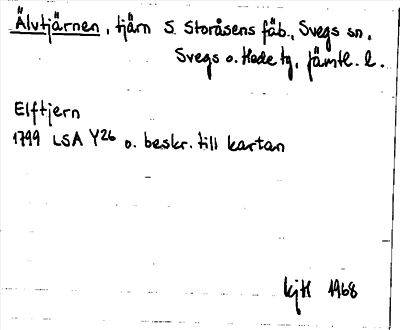 Älvtjärnen, tjärn S. Storåsens fäb., Svegs sn.
Svegs o. Hede tg, Jämtl. l.
Elftjern
1799 LSA Y26 o. beskr. till kartan
kjH 1968